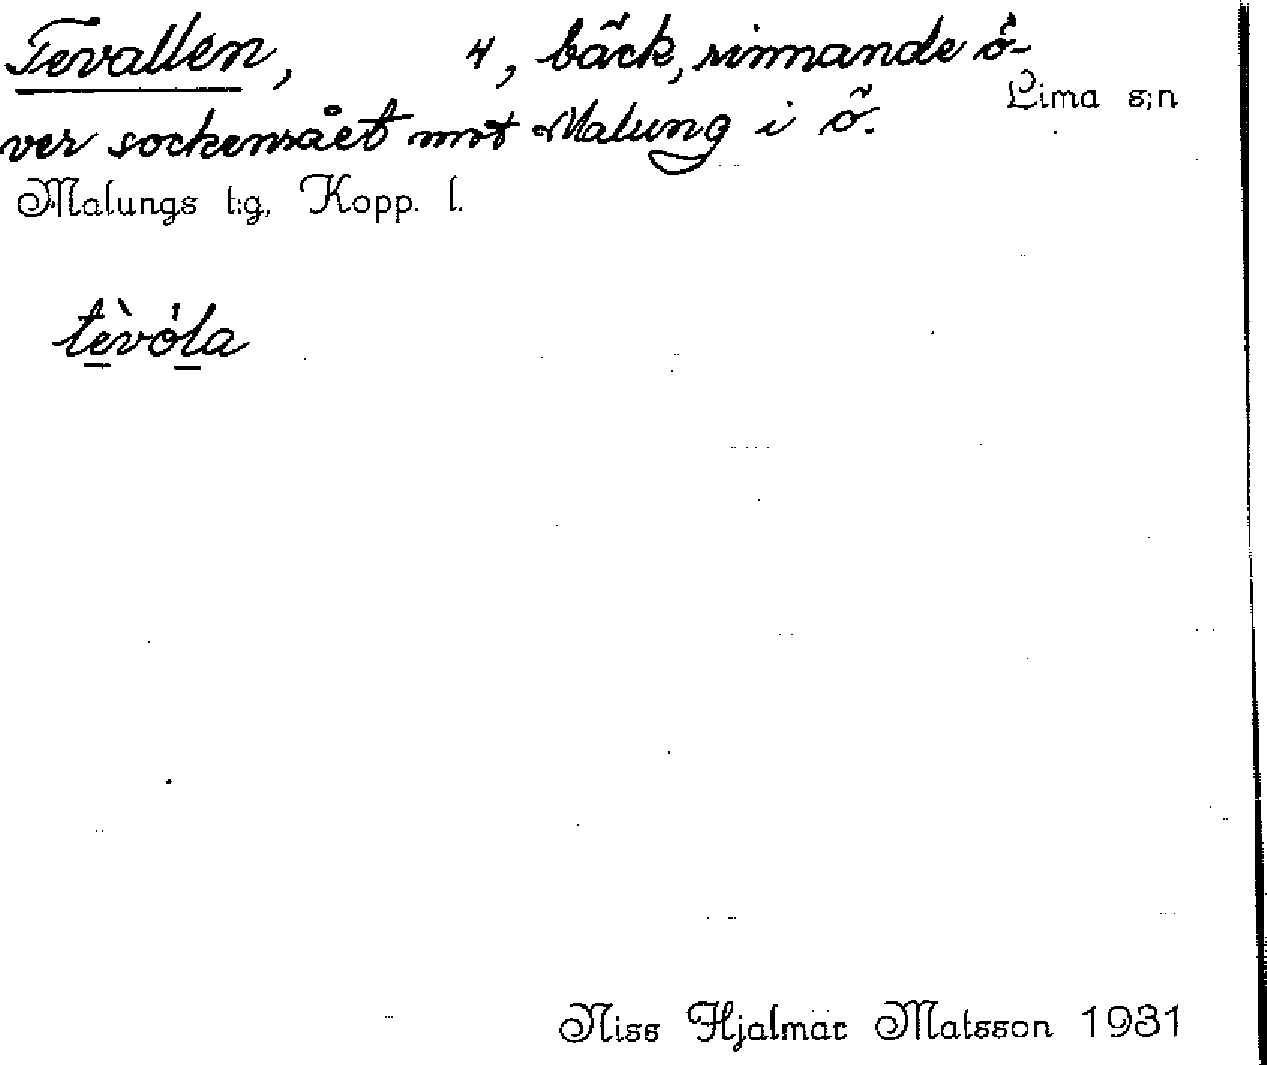 Tevallen, 4, bäck, rinnande ö-
Lima s;n
ver sockenrået mot Malung i ö.
Malungs t:g, Kopp. l.
tèvóla
Niss Hjalmar Matsson 1931